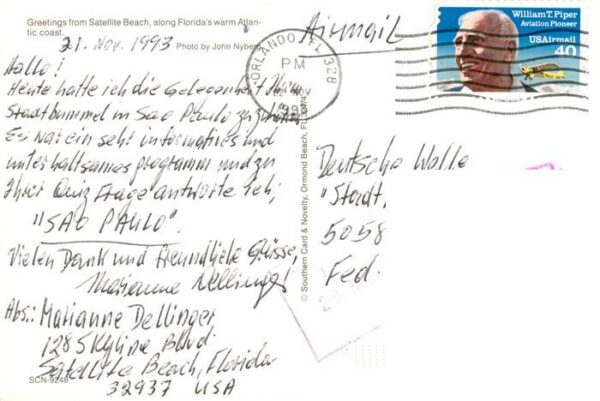 Greetings from Satellite Beach, along Florida's warm Atlan-
tic coast.
21. Nov. 1993
Photo by John Nyberg
Hallo!
Heute hatte ich die Gelegenheit Ihren
Stadtbummel in Sao Paulo zuzuhören
Es war ein sehr informatives und
unterhaltsames programm und zu
Ihrer Quiz Frage antworte ich;
"SAO PAULO".
Vielen Dank und Freundliche Grüsse,
Marianne Dellinger
Abs.: Marianne Dellinger
128 Skyline Blvd.
Satellite Beach, Florida
32937 USA
SCN-9248
© Southern Card & Novelty, Ormond Beach, FL 32174
Airmail
ORLANDO, FL 328
PM
William T. Piper
Aviation Pioneer
USAirmail
40
Deutsche Welle
"Stadt,
5058
Fed.